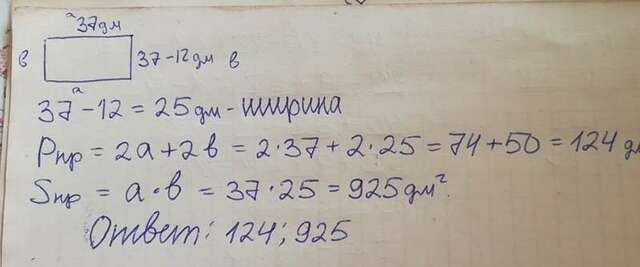 a
37 дм
в 37-12 дм в
a
37 - 12 = 25 дм - ширина
Pпр = 2a + 2в = 2·37 + 2·25 = 74 + 50 = 124 д
Sпр = a·в = 37·25 = 925 дм².
Ответ: 124; 925